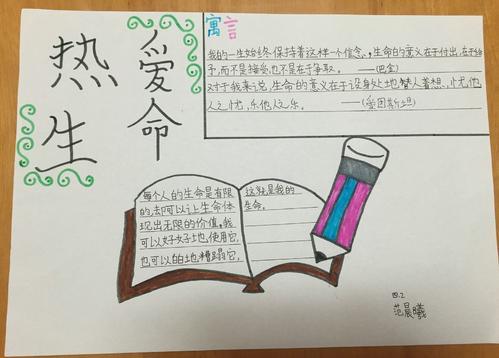 热爱
生命
寓言
我的一生始终保持着这样一个信念,生命的意义在于付出,在于给
予,而不是接受,也不是在于争取。 ——(巴金)
对于我来说,生命的意义在于设身处地替人着想,忧他
人之忧,乐他人之乐。 ——(爱因斯坦)
每个人的生命是有限
的,却可以让生命体
现出无限的价值,我
可以好好地使用它,
也可以白白地糟蹋它,
这就是我的
生命。
四.2
范晨曦